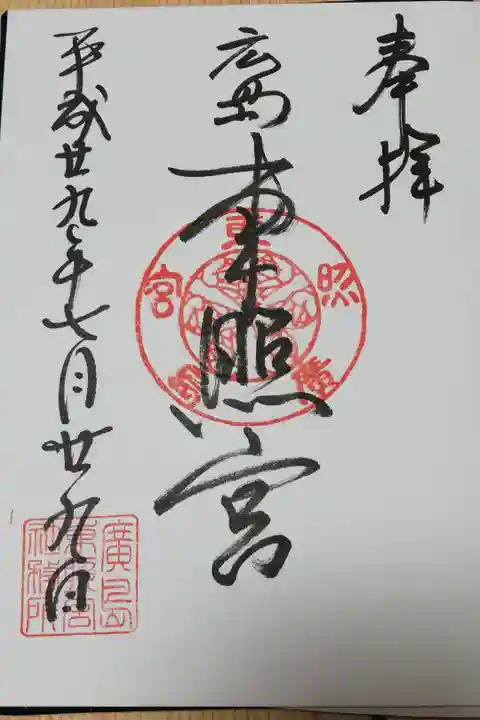 奉拝
広島
東照宮
平成廿九年七月廿九日
東
照
宮
廣島
東照宮
社務所